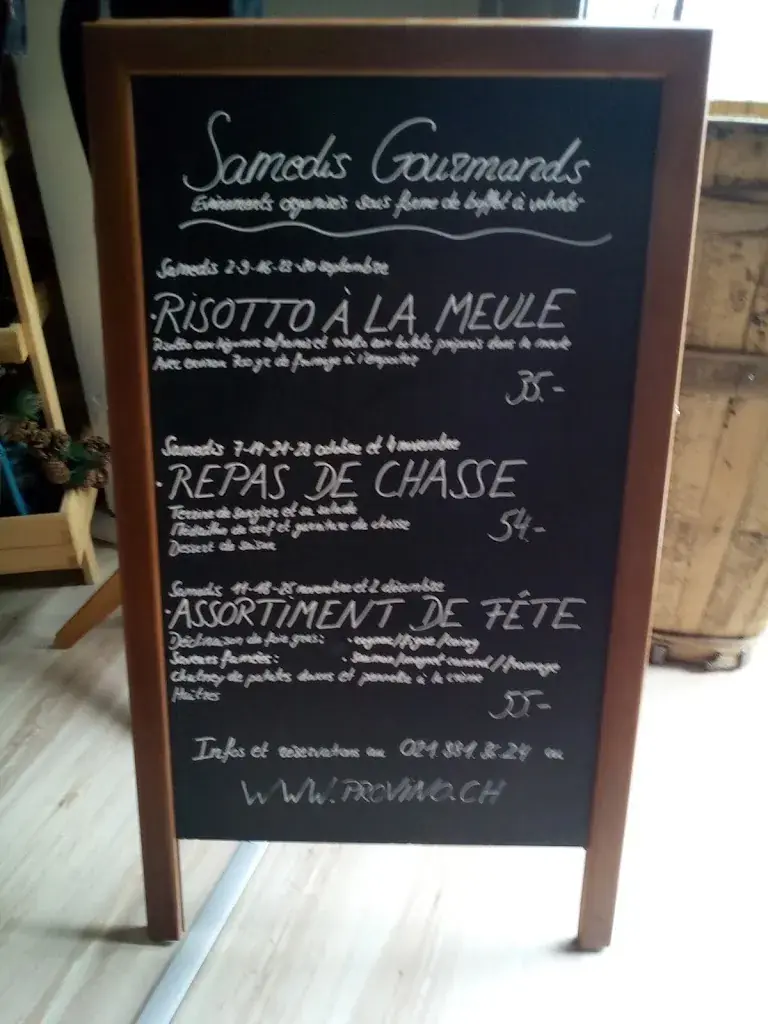 Samedis Gourmands
Evénements organisés sous forme de buffet à volonté
Samedis 2-9-16-23-30 septembre
RISOTTO À LA MEULE
Risotto aux légumes et risotto aux bolets préparés dans la meule
Avec environ 700 gr de fromage à l'emporter
35.-
Samedis 7-14-21-28 octobre et 4 novembre
REPAS DE CHASSE
Terrine de sanglier et sa salade
Médaillon de cerf et garniture de chasse
54.-
Dessert de saison
Samedis 11-18-25 novembre et 2 décembre
ASSORTIMENT DE FÊTE
Déclinaison de foie gras: cognac/figue/
Saveurs fumées: saumon/magret canard/fromage
Chutney de patates douces et pannella à la crème
Huîtres
55.-
Infos et réservations au 021 ou
WWW.PROVINO.CH